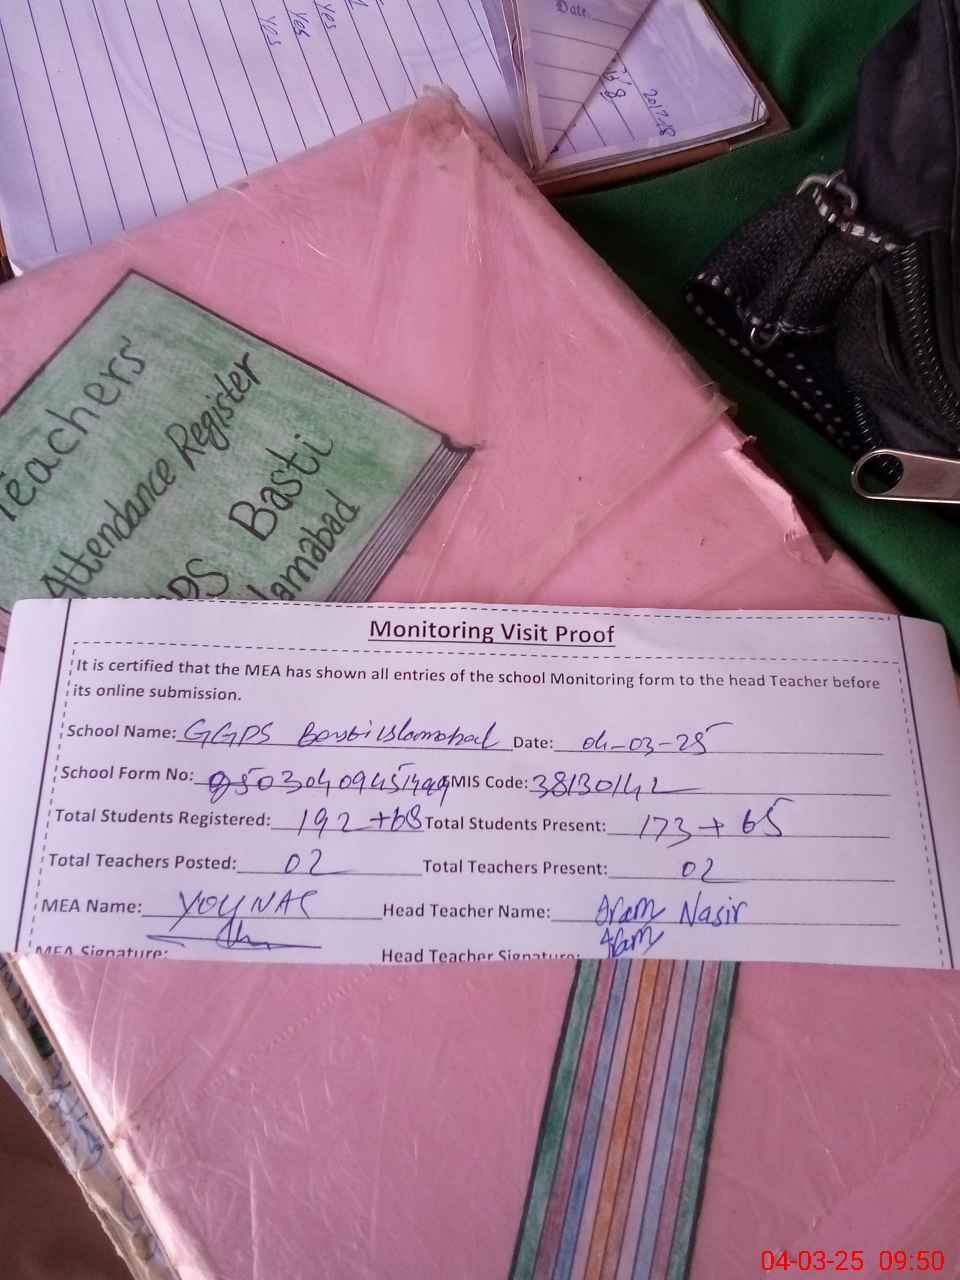 yes
yes
yes
Date.
2017-18
Teachers'
Attendance Register
Basti
Monitoring Visit Proof
It is certified that the MEA has shown all entries of the school Monitoring form to the head Teacher before
its online submission.
School Name: GGPS Basti islamabad Date: 04-03-25
School Form No: EMIS Code: 38130142
Total Students Registered: 192+68 Total Students Present: 173+65
Total Teachers Posted: 02 Total Teachers Present: 02
MEA Name: YOUNAS Head Teacher Name: Nasir
MEA Signature: Head Teacher Signature:
04-03-25 09:50